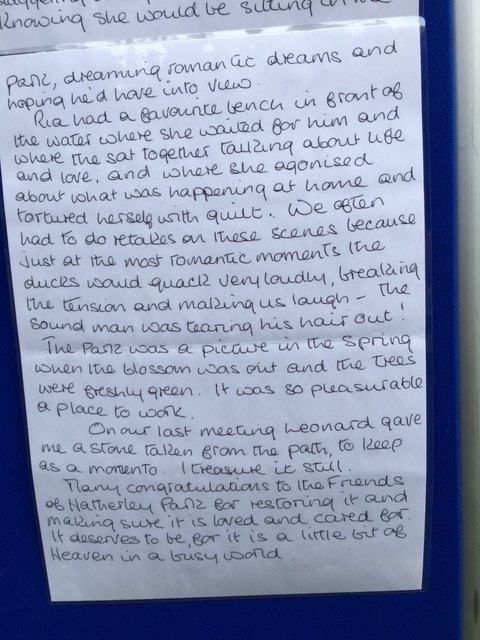 Knowing she would be sitting in the
Park, dreaming romantic dreams and
hoping he'd have into view.
Ria had a favourite bench in front of
the water where she waited for him and
where the sat together talking about life
and love, and where she agonised
about what was happening at home and
tortured herself with guilt. We often
had to do retakes on these scenes because
just at the most romantic moments the
ducks would quack very loudly, breaking
the tension and making us laugh – the
sound man was tearing his hair out!
The Park was a picture in the Spring
when the blossom was out and the trees
were freshly green. It was so pleasurable
a place to work.
On our last meeting Leonard gave
me a stone taken from the path, to keep
as a momento. I treasure it still.
Many congratulations to the Friends
of Hatherley Park for restoring it and
making sure it is loved and cared for.
It deserves to be, for it is a little bit of
Heaven in a busy world.